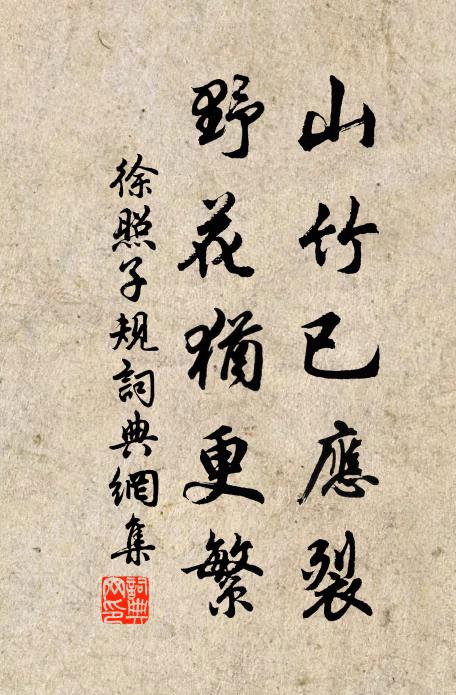 山竹已應裂
野花猶更繁
徐照子規詞典網集
詞典